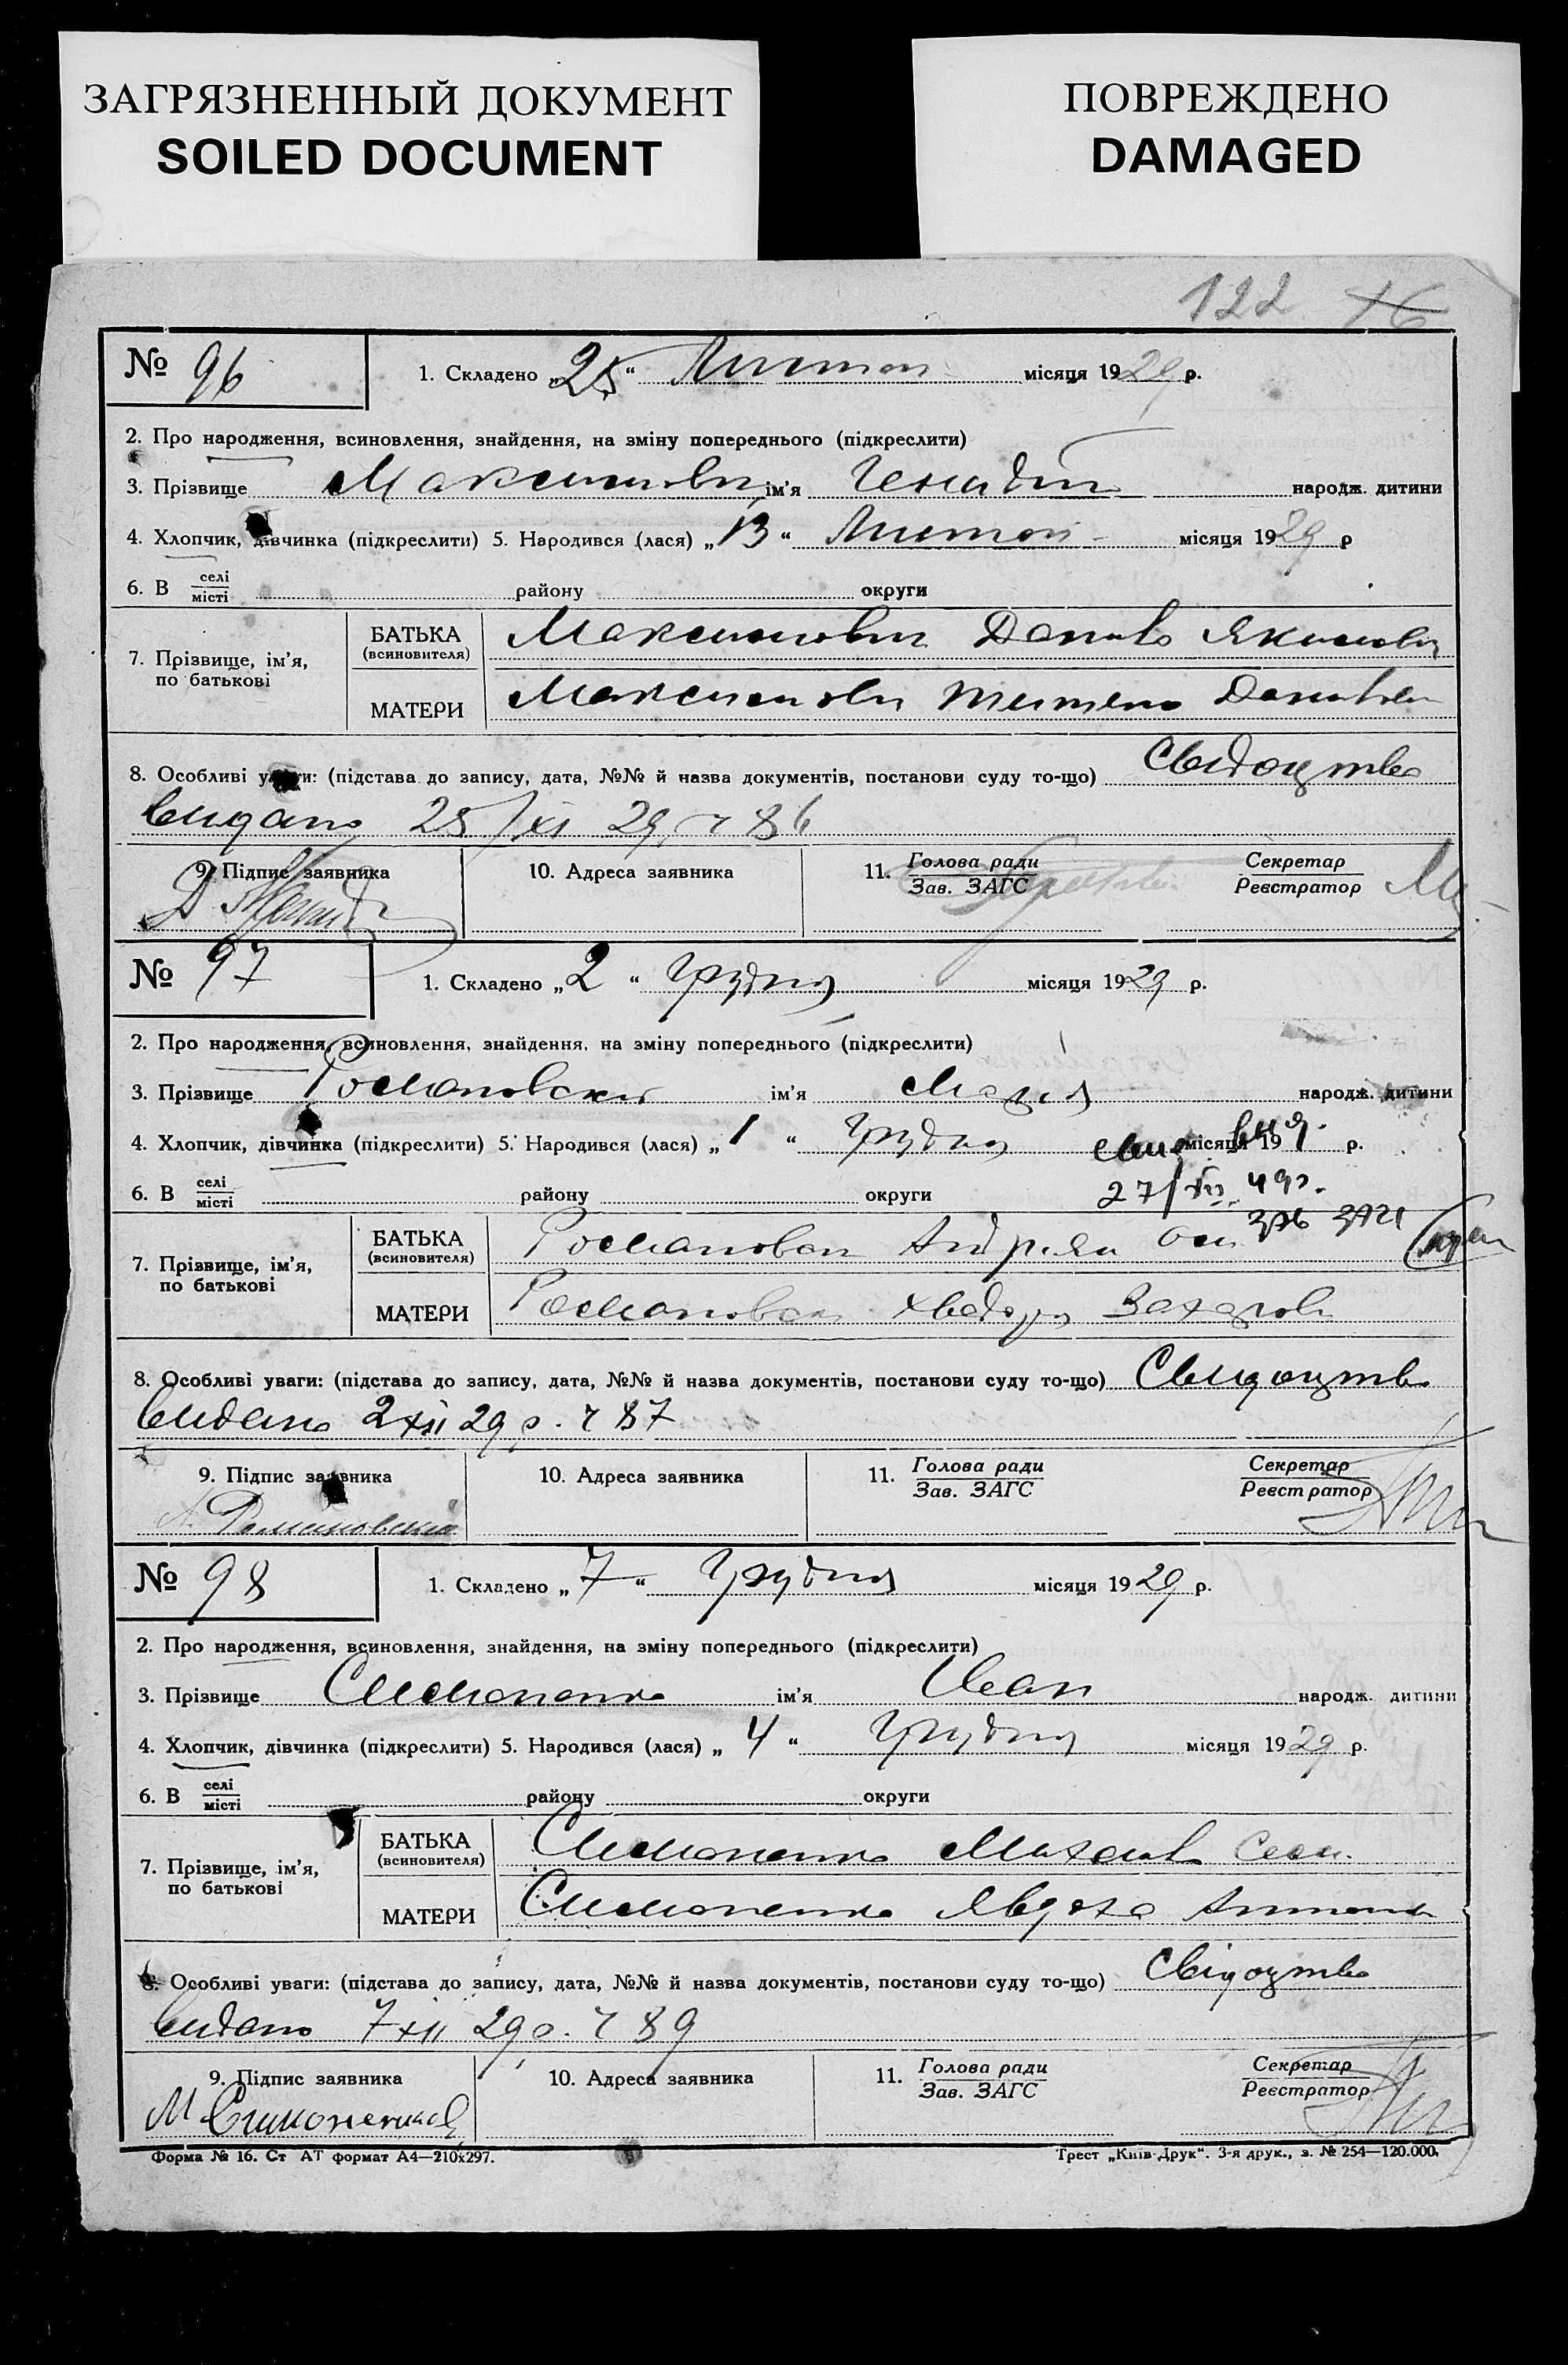 ЗАГРЯЗНЕННЫЙ ДОКУМЕНТ
SOILED DOCUMENT
ПОВРЕЖДЕНО
DAMAGED
122
№ 96
1. Складено „25“ Листоп місяця 1929 р.
2. Про народження, всиновлення, знайдення, на зміну попереднього (підкреслити)
3. Прізвище Максимович ім'я Генадій народж. дитини
4. Хлопчик, дівчинка (підкреслити) 5. Народився (лася) „13“ Листоп місяця 1929 р
6. В селі/місті району округи
7. Прізвище, ім'я, по батькові
БАТЬКА (всиновителя) Максимович Данило Якимович
МАТЕРИ Максимович Данилов
8. Особливі уваги: (підстава до запису, дата, №№ й назва документів, постанови суду то-що) Свідоцтво
видано 25/XI 29 р ч 86
9. Підпис заявника
10. Адреса заявника
11. Голова ради
Зав. ЗАГС
Секретар
Реєстратор
№ 97
1. Складено „2“ Грудня місяця 1929 р.
2. Про народження, всиновлення, знайдення, на зміну попереднього (підкреслити)
3. Прізвище Романовский ім'я Марія народж. дитини
4. Хлопчик, дівчинка (підкреслити) 5. Народився (лася) „1“ Грудня місяця 19 р.
6. В селі/місті району округи
7. Прізвище, ім'я, по батькові
БАТЬКА (всиновителя) Романовск Андриян Оси
МАТЕРИ Романовск Хведора Захаров
8. Особливі уваги: (підстава до запису, дата, №№ й назва документів, постанови суду то-що) Свидоцтво
видано 2 XII 29 р. ч 87
9. Підпис заявника
А. Романовский
10. Адреса заявника
11. Голова ради
Зав. ЗАГС
Секретар
Реєстратор
№ 98
1. Складено „7“ Грудня місяця 1929 р.
2. Про народження, всиновлення, знайдення, на зміну попереднього (підкреслити)
3. Прізвище Симоненко ім'я Иван народж. дитини
4. Хлопчик, дівчинка (підкреслити) 5. Народився (лася) „4“ Грудня місяця 1929 р.
6. В селі/місті району округи
7. Прізвище, ім'я, по батькові
БАТЬКА (всиновителя) Симоненко Михайло Сем.
МАТЕРИ Симоненко Явдоха Антонов
8. Особливі уваги: (підстава до запису, дата, №№ й назва документів, постанови суду то-що) Свідоцтво
видано 7 XII 29 р. ч 89
9. Підпис заявника
М Симоненко
10. Адреса заявника
11. Голова ради
Зав. ЗАГС
Секретар
Реєстратор
Форма № 16. Ст АТ формат А4—210х297.
Трест „Київ-Друк“. 3-я друк., з. № 254—120.000.